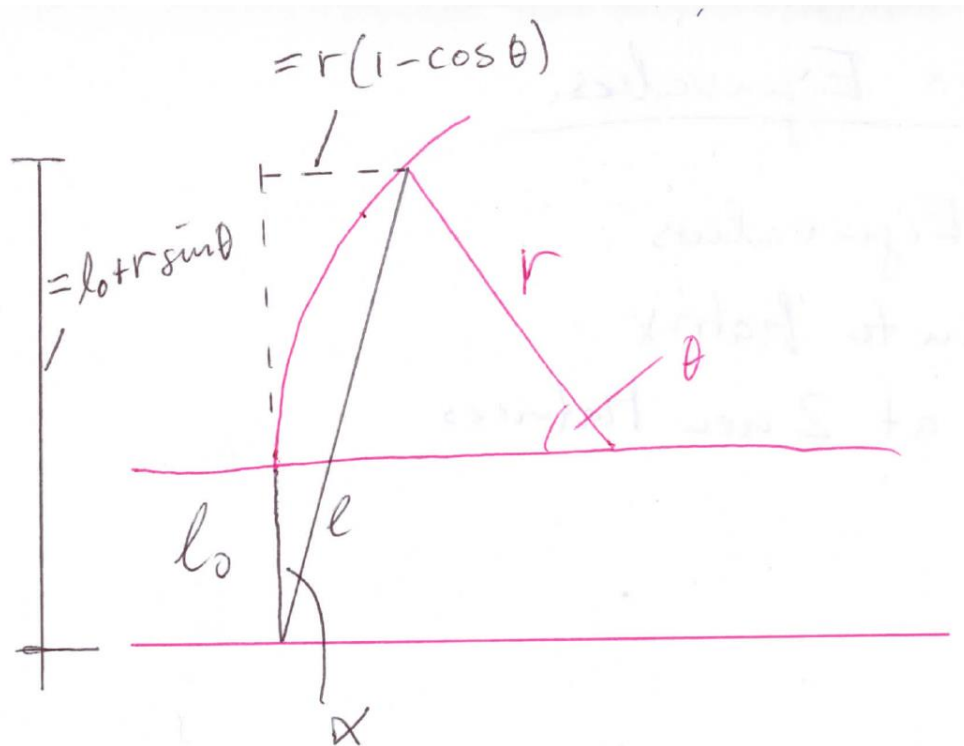 = r(1-cos θ)
= l₀+r sinθ
r
θ
l₀
l
α